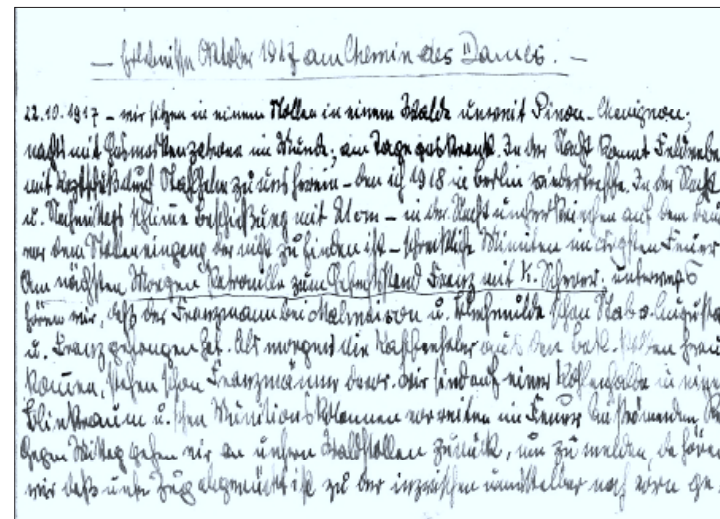 — Erlebnisse Oktober 1917 am Chemin des Dames. —
22.10.1917 – wir sitzen in einem Stollen in einem Walde unweit Pinon-Chavignon;
nachts mit Gasmaskenzapfen im Munde; am Tage gaskrank. In der Nacht kommt
mit Kopfschuß durch Stahlhelm zu uns herein – den ich 1918 in Berlin wiedertreffe. In der Nacht
u. schlimme Beschießung mit – in der Nacht auf dem
vor dem Stolleneingang der nicht zu finden ist – schreckliche Minuten im Feuer
Am nächsten Morgen Patrouille zum Gefechtsstand Franz mit K. Scherer, unterwegs
hören wir, daß der Franzmann bei Malmaison u. schon Stab v. Augusta
u. Franz gefangen hat. Als morgens die aus den
kommen, stehen schon Franzmänner davor. Wir sind auf einer in einem
u. sehen Munitionskolonnen vorreiten im Feuer bei strömendem
Gegen Mittag gehen wir an unsern Waldstollen zurück, um zu melden, da hören
wir daß unser Zug abgerückt ist zu der inzwischen unmittelbar nach vorn ge-